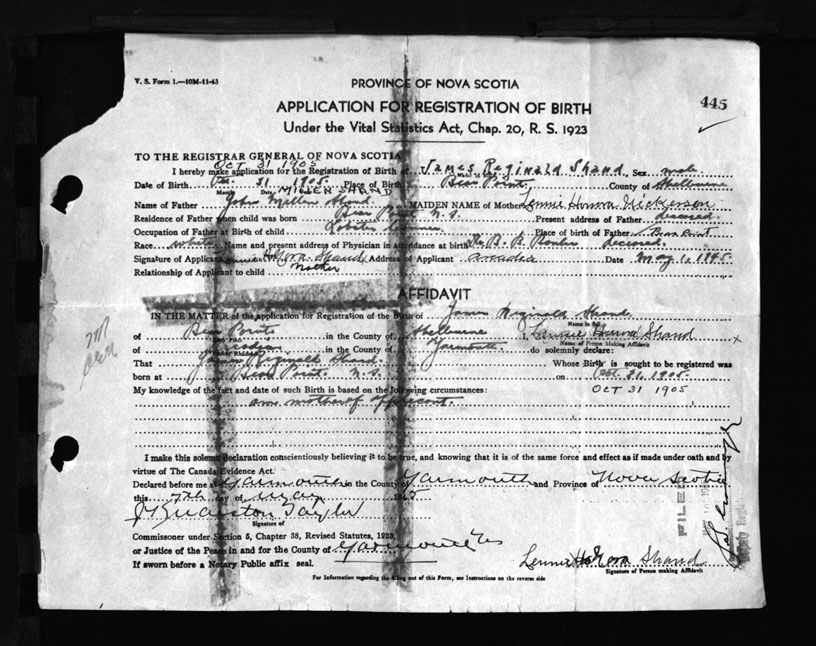 V. S. Form 1.—10M-11-43
PROVINCE OF NOVA SCOTIA
445
APPLICATION FOR REGISTRATION OF BIRTH
Under the Vital Statistics Act, Chap. 20, R. S. 1923
TO THE REGISTRAR GENERAL OF NOVA SCOTIA
OCT 31 1905
I hereby make application for the Registration of Birth of James Reginald Shand, Sex male
Date of Birth 31 1905. Place of Birth Bear Point. County of Shelburne
MILLEN SHAND
Name of Father John Millen Shand. MAIDEN NAME of Mother Lennie Honora Nickerson
Residence of Father when child was born Bear Point N. S. Present address of Father deceased.
Occupation of Father at Birth of child Lobster Place of birth of Father Bear Point
Race white Name and present address of Physician in attendance at birth Dr. B. B. deceased.
Signature of Applicant Shand Address of Applicant Arcadia Date May 1, 1945.
Relationship of Applicant to child Mother
AFFIDAVIT
IN THE MATTER of the application for Registration of the Birth of James Reginald Shand
Name in full
of Bear Point in the County of Shelburne I, Lennie Honora Shand
Name of Person Making Affidavit
of Arcadia in the County of Yarmouth. do solemnly declare:
That James Reginald Shand. Whose Birth is sought to be registered was
born at Bear Point. N. S. on Oct. 31, 1905.
My knowledge of the fact and date of such Birth is based on the following circumstances: OCT 31 1905
am mother of applicant.
I make this solemn declaration conscientiously believing it to be true, and knowing that it is of the same force and effect as if made under oath and by
virtue of The Canada Evidence Act.
Declared before me at Yarmouth in the County of Yarmouth and Province of Nova Scotia
this 7th day of May 1945
Signature of
Commissioner under Section 5, Chapter 38, Revised Statutes, 1923,
or Justice of the Peace in and for the County of Yarmouth
If sworn before a Notary Public affix seal.
Lennie Honora Shand
Signature of Person making Affidavit
For Information regarding the filling out of this Form, see Instructions on the reverse side
FILED